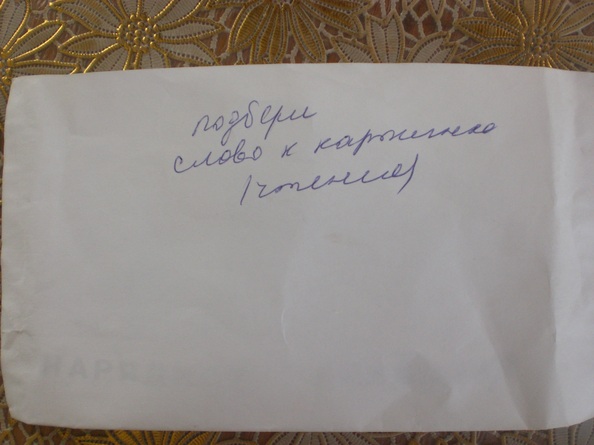 подбери
слово к картинке
(чтение)